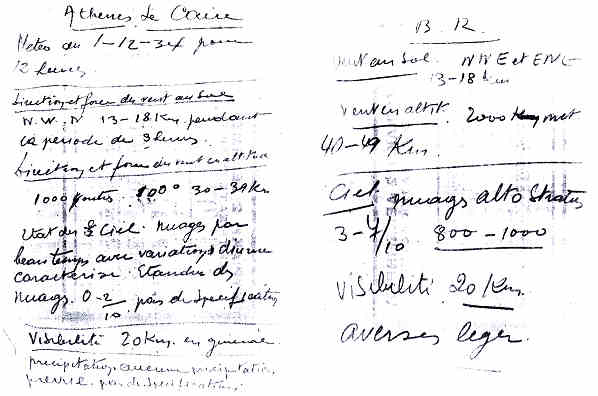 Athenes Le Caire
Meteo du 1-12-34 pour
12 heures
Direction et force du vent au sol
N.W. N 13-18 Km. pendant
la periode de 3 heures.
Direction et force du vent en altitude
1000 100° 30-39 Km
Etat du Ciel. Nuages par
beau temps avec variations diurne
caractérisé. Etendue ds
nuags. 0-2/10 pas de specification
Visibilité 20 Km. en general
precipitation aucune precipitation
prevue. pas de specifications.
B. R.
Vent au sol. NNE et ENE
13-18 Km
Vent en altit. 2000 met
40-49 Km.
Ciel nuags alto stratus
3-4/10 800-1000
Visibilité 20 Km.
averses leger.